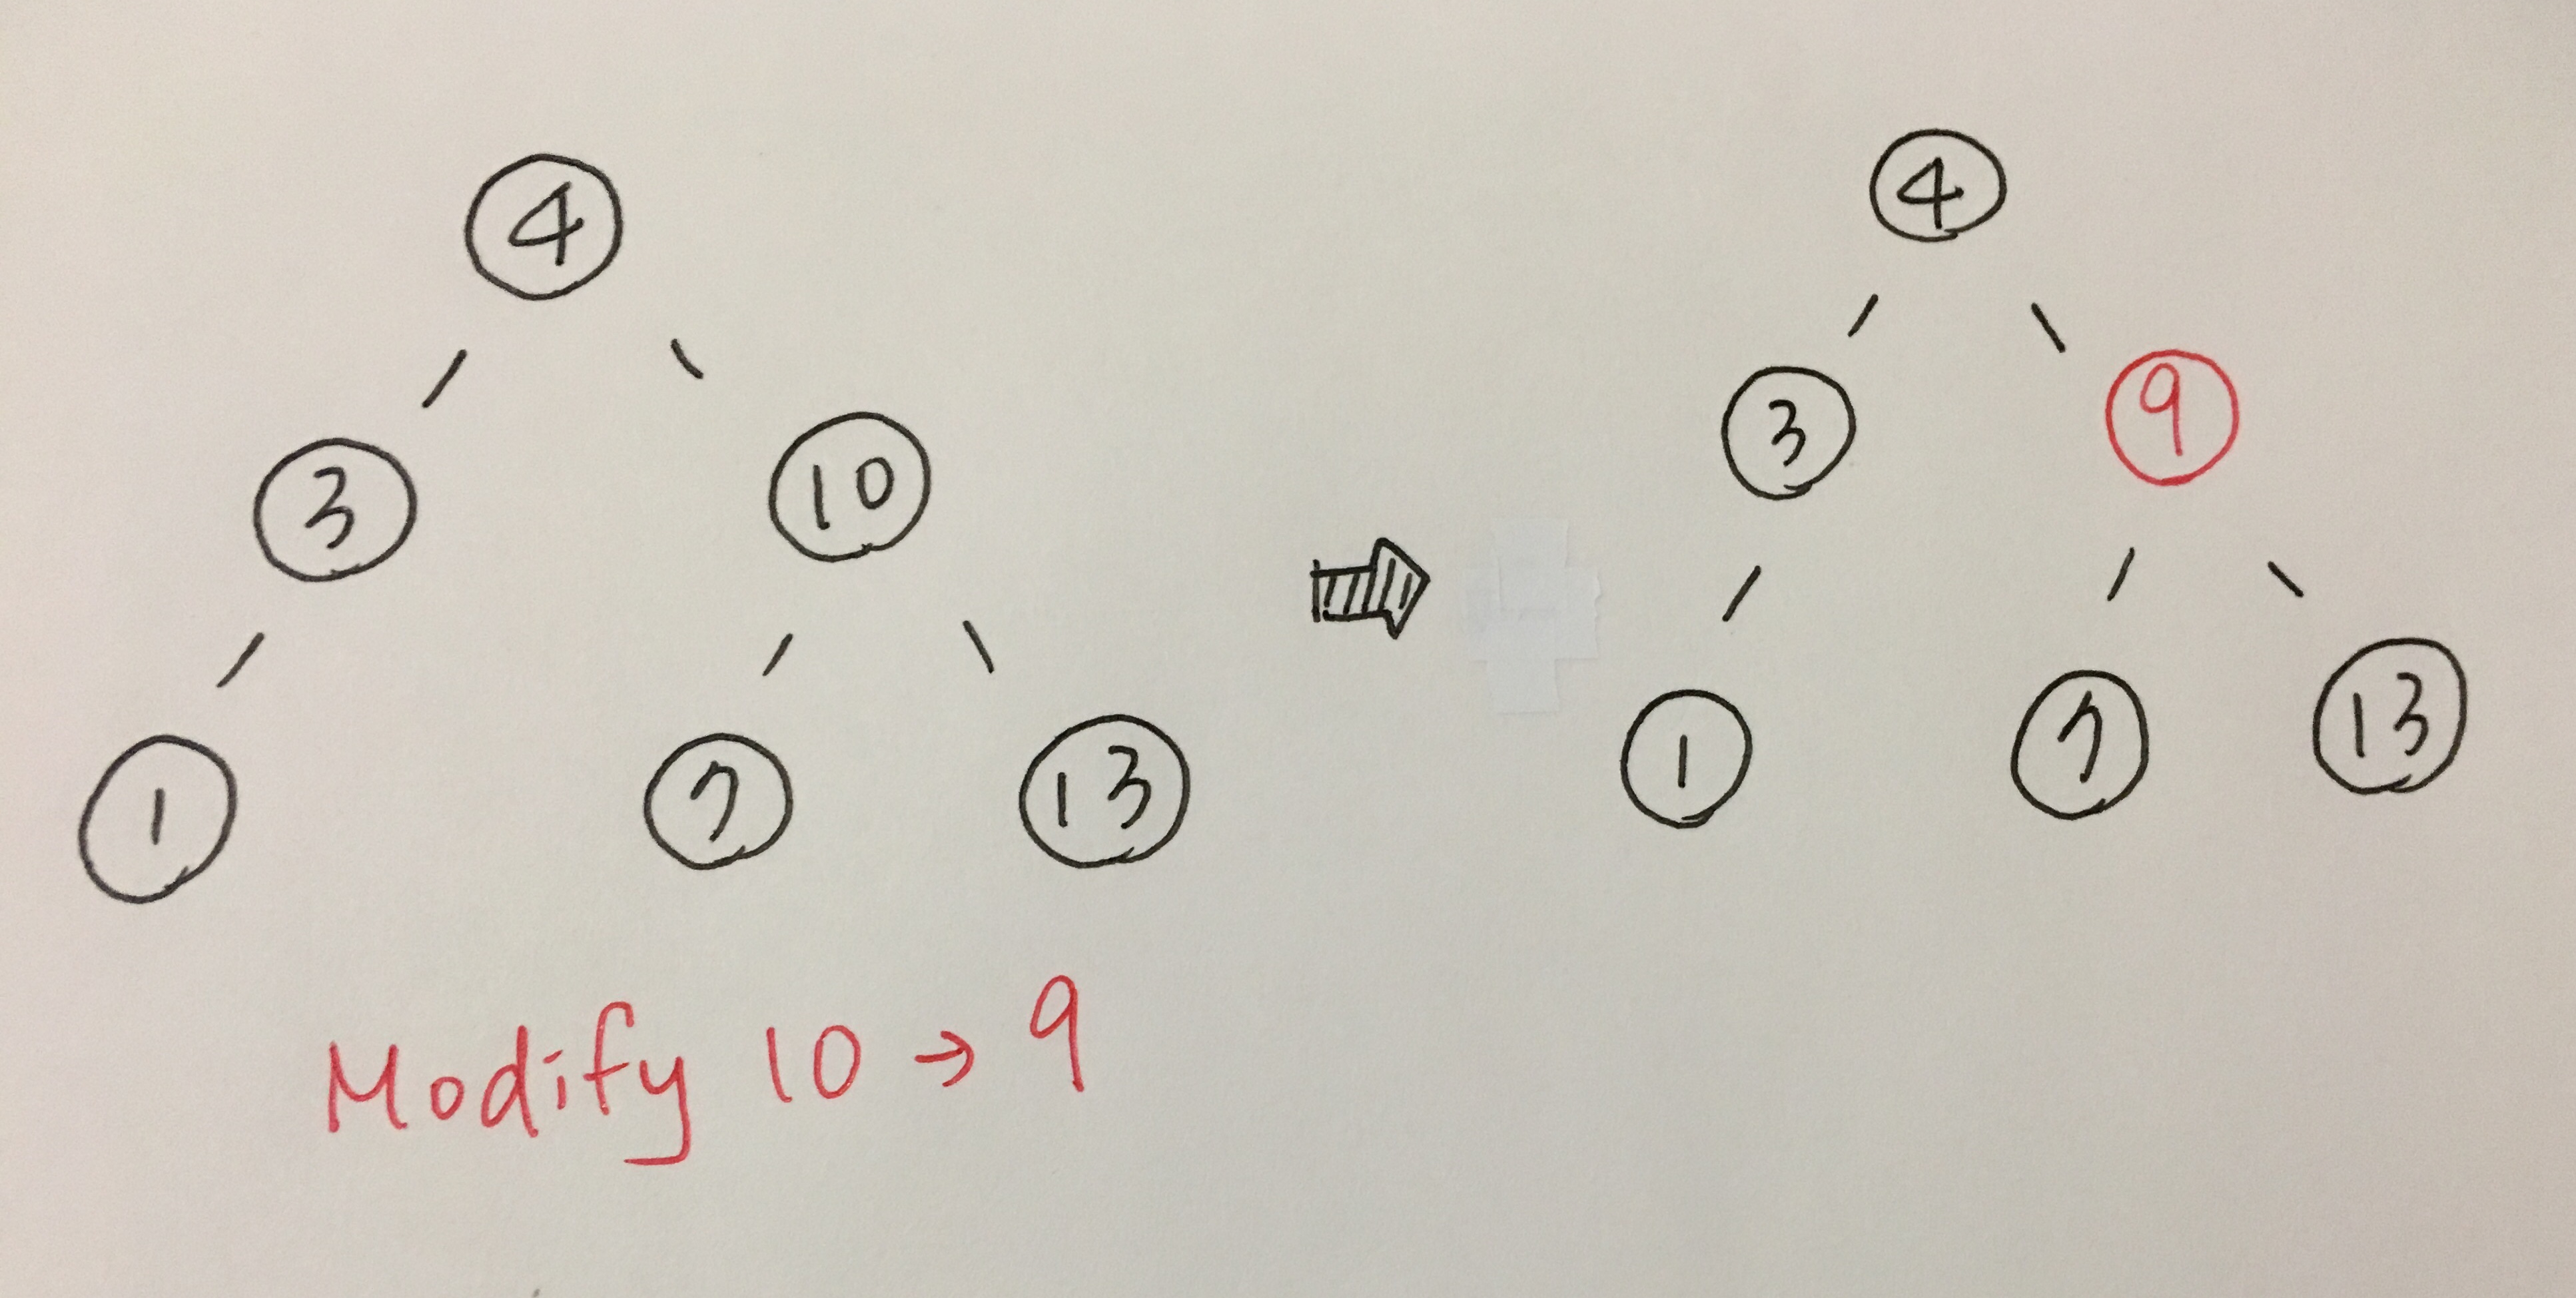 4
3 10
1 7 13
Modify 10 → 9
4
3 9
1 7 13